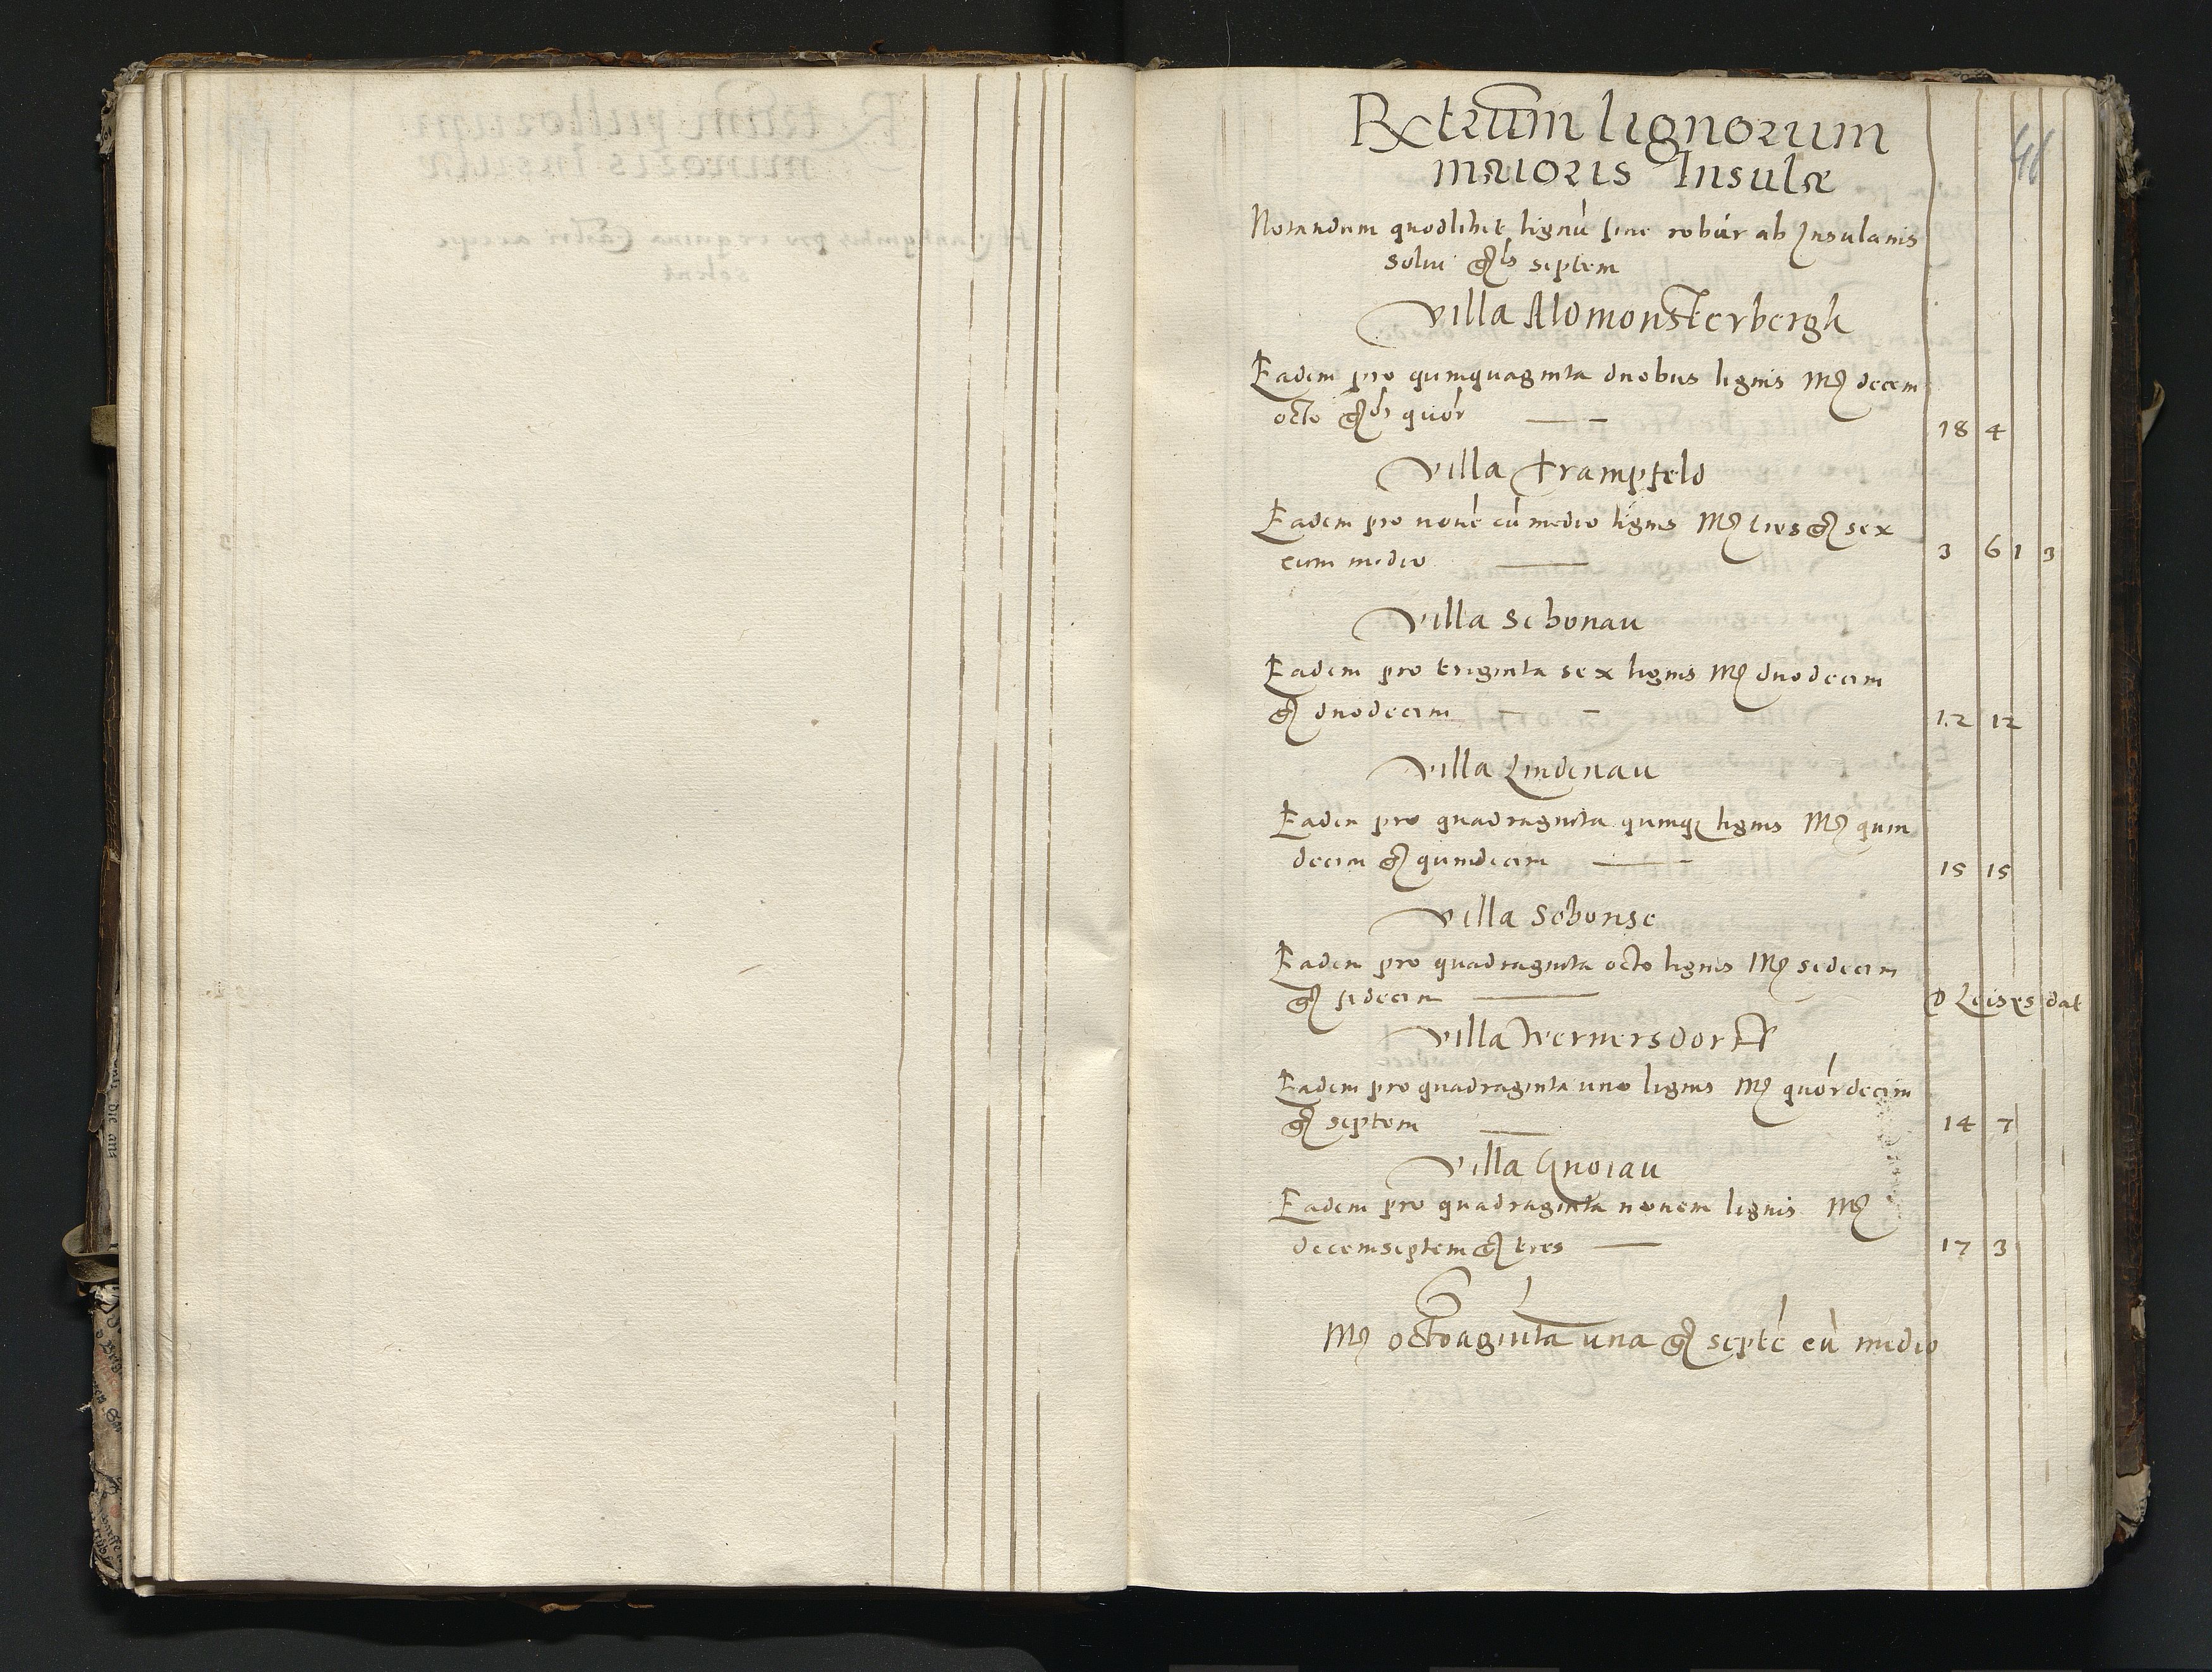 Rxtrum lignorum
maioris Insulæ
Notandum quodlibet lignū siue robur ab Insulanis
solui gr septem
Villa Aldmonsterbergh
Eadem pro quinquaginta duobus lignis Mr decem
octo gr quor
18 4
Villa Trampfeld
Eadem pro nouē cū medio lignis Mr tres gr sex
cum medio
3 6 1 3
Villa Schonau
Eadem pro triginta sex lignis Mr duodecim
gr duodecim
12 12
Villa Lindenau
Eadem pro quadraginta quinqȝ lignis Mr quin
decim gr quindecim
15 15
Villa Schonse
Eadem pro quadraginta octo lignis Mr sedecim
gr sedecim
dat
Villa Wernersdorff
Eadem pro quadraginta uno lignis Mr quordecim
gr septem
14 7
Villa Gnoiau
Eadem pro quadraginta nouem lignis Mr
decemseptem gr tres
17 3
Mr octoaginta una gr septē cū medio